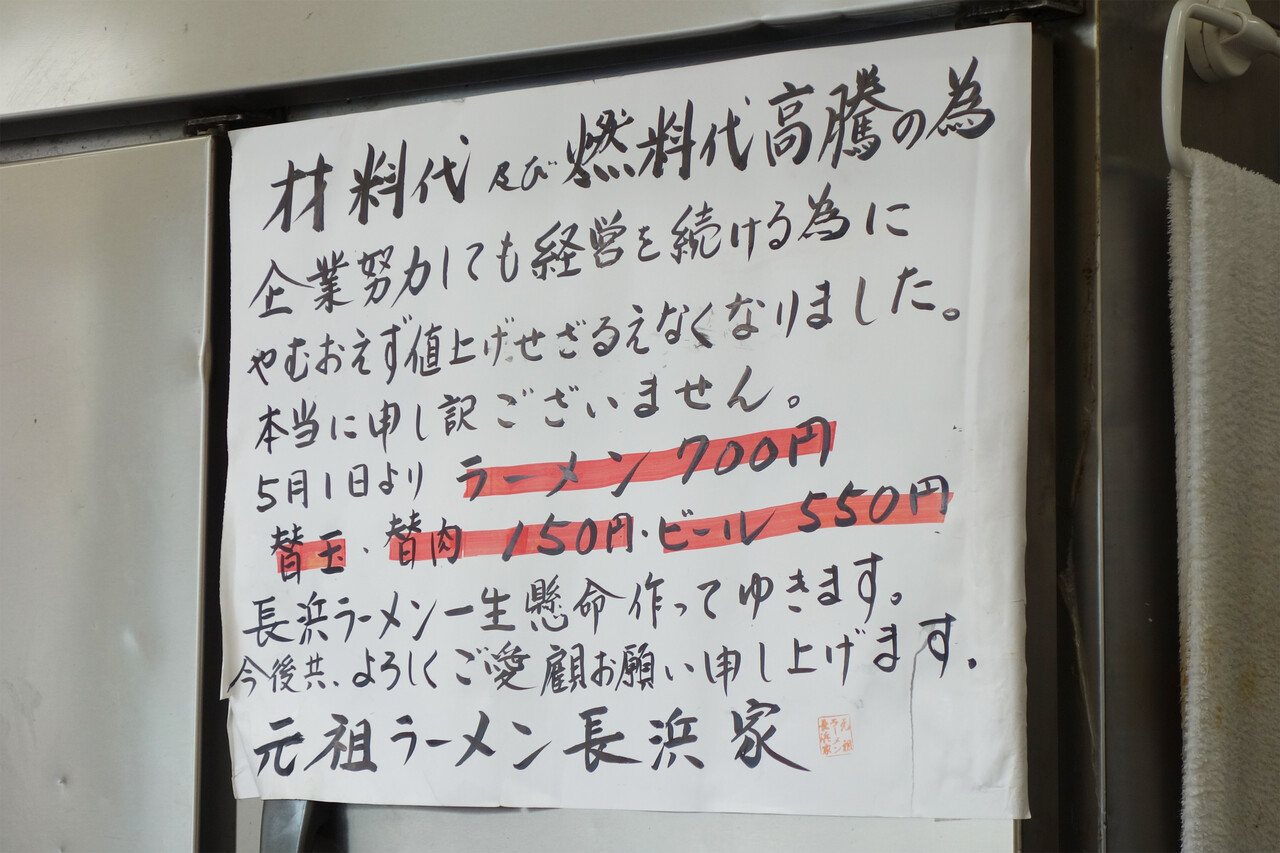 材料代及び燃料代高騰の為
企業努力しても経営を続ける為に
やむおえず値上げせざるえなくなりました。
本当に申し訳ございません。
5月1日より ラーメン 700円
替玉・替肉 150円・ビール 550円
長浜ラーメン一生懸命作ってゆきます。
今後共、よろしくご愛顧お願い申し上げます。
元祖ラーメン長浜家
元祖
ラーメン
長浜家